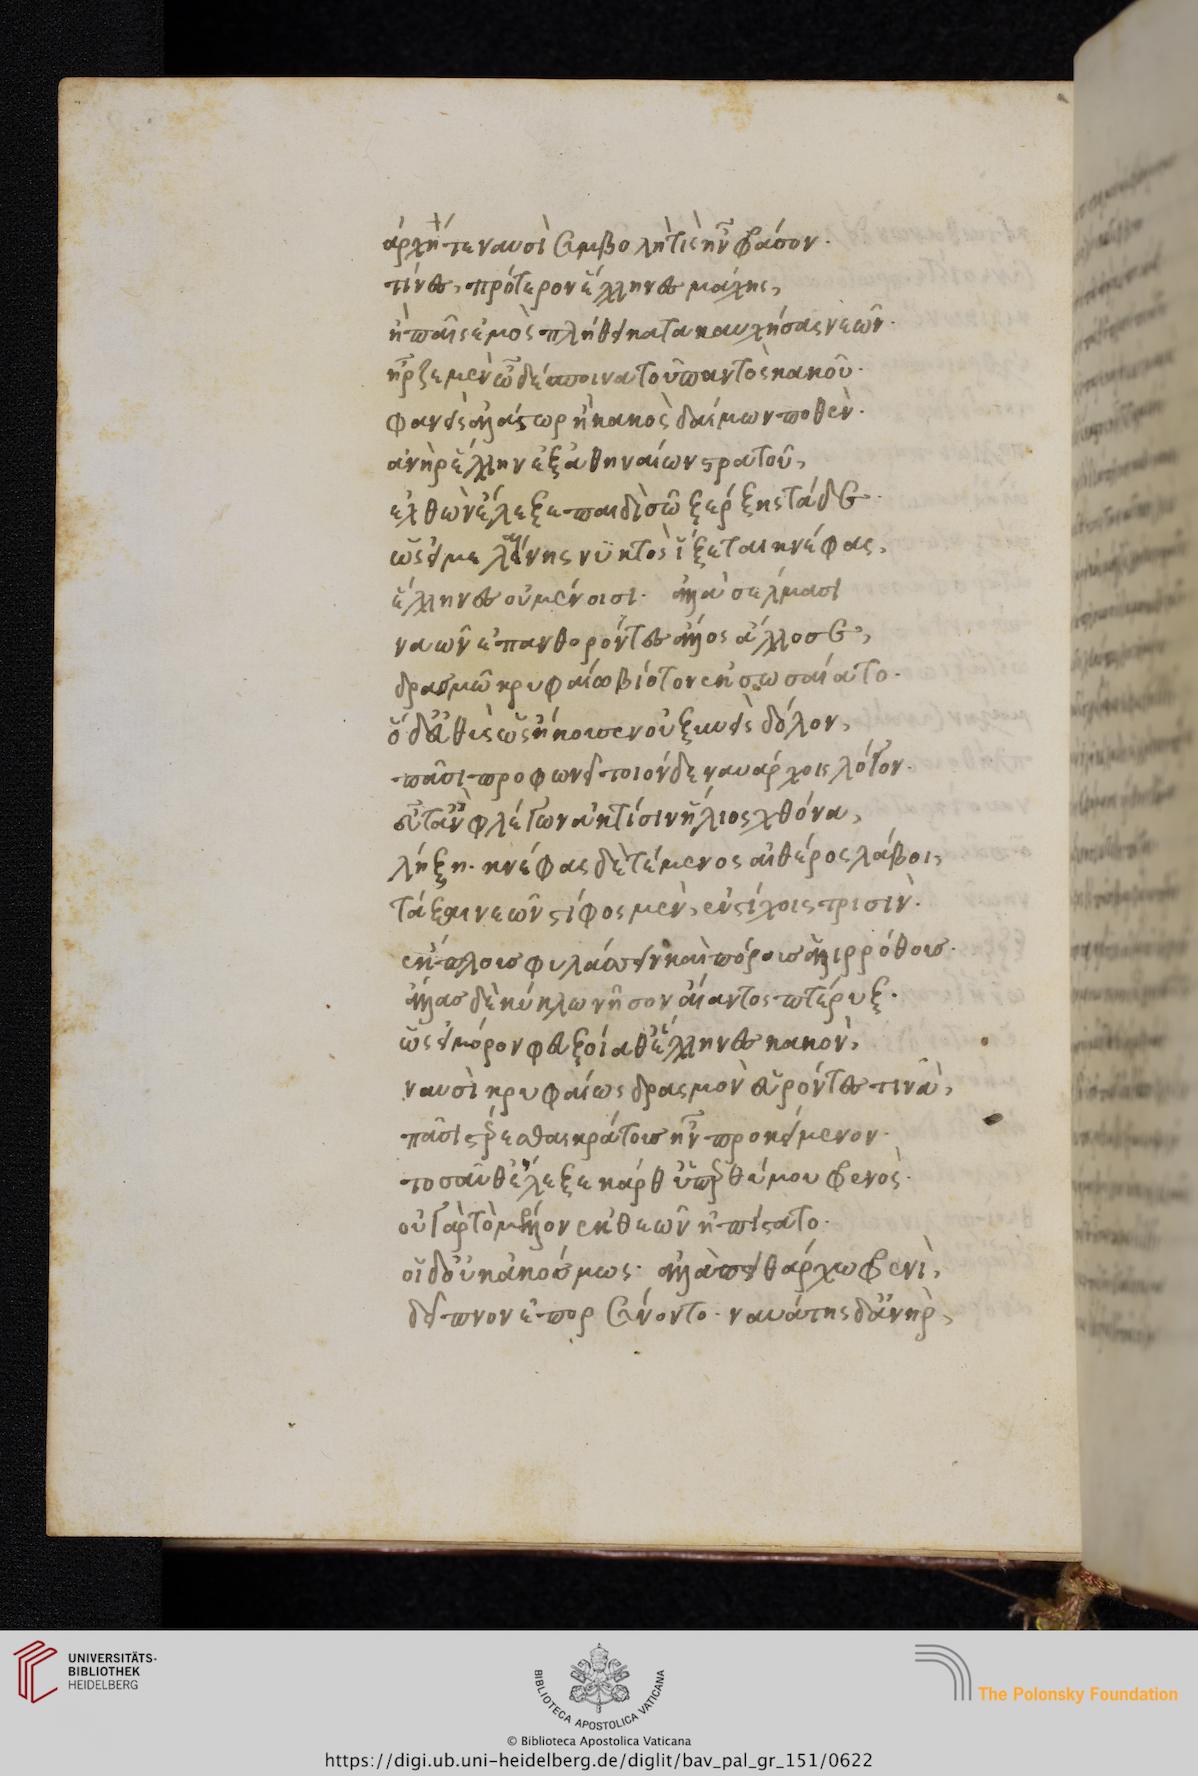 ἀρχὴ τε ναυσὶ συμβολῆ τίς ἦν φράσον·
τίνες, πρότερον ἕλληνες μάχης,
ἢ παῖς ἐμὸς πλήθει καταυχήσας νεῶν·
ἦρξε μὲν ὦ δέσποινα τοῦ παντὸς κακοῦ·
φανεὶς ἀλάστωρ ἢ κακὸς δαίμων ποθὲν·
ἀνὴρ ἕλλην ἐξ ἀθηναίων στρατοῦ,
ἐλθὼν ἔλεξε παιδὶ σῶ ξέρξης τάδε·
ὡς εἰ μελαίνης νϋκτὸς ἵξεται κνέφας,
ἕλληνες οὐ μένοισι· ἀλλὰ σέλμασι
ναῶν ἐπανθορόντες ἄλλος ἄλλοσε,
δρασμῶ κρυφαίω βίοτον ἐκσωσαίατο·
ὁ δ' εὐθὺς ὡς ἤκουσεν οὐ ξυνεὶς δόλον,
πᾶσι προφωνεῖ τοιόνδε ναυάρχοις λόγον·
εὖτ' ἂν φλέγων ἀκτίσιν ἥλιος χθόνα,
λήξη· κνέφας δὲ τέμενος αἰθέρος λάβοι,
τάξαι νεῶν στίφος μὲν, ἐν στίχοις τρισὶν·
ἔκπλους φυλάσσειν καὶ πόρους ἁλιρρόθους·
ἄλλας δὲ κύκλω νῆσον αἴαντος πτέρυξ·
ὡς εἰ μόρον φευξοίαθ' ἕλληνες κακὸν,
ναυσὶ κρυφαίως δρασμὸν εὑρόντες τινὰ,
πᾶσι στέρεσθαι κράτους ἦν προκείμενον·
τοσαῦθ' ἔλεξε κάρθ' ὑπερθύμου φρενὸς·
οὐ γὰρ τὸ μέλλον ἐκ θεῶν ἠπίστατο·
οἱ δ' οὐκ ἀκόσμως· ἀλλὰ πειθάρχω φρενὶ,
δεῖπνον ἐπορσύνοντο· ναυάτης δ' ἀνὴρ,
UNIVERSITÄTS-
BIBLIOTHEK
HEIDELBERG
BIBLIOTECA APOSTOLICA VATICANA
The Polonsky Foundation
© Biblioteca Apostolica Vaticana
https://digi.ub.uni-heidelberg.de/diglit/bav_pal_gr_151/0622